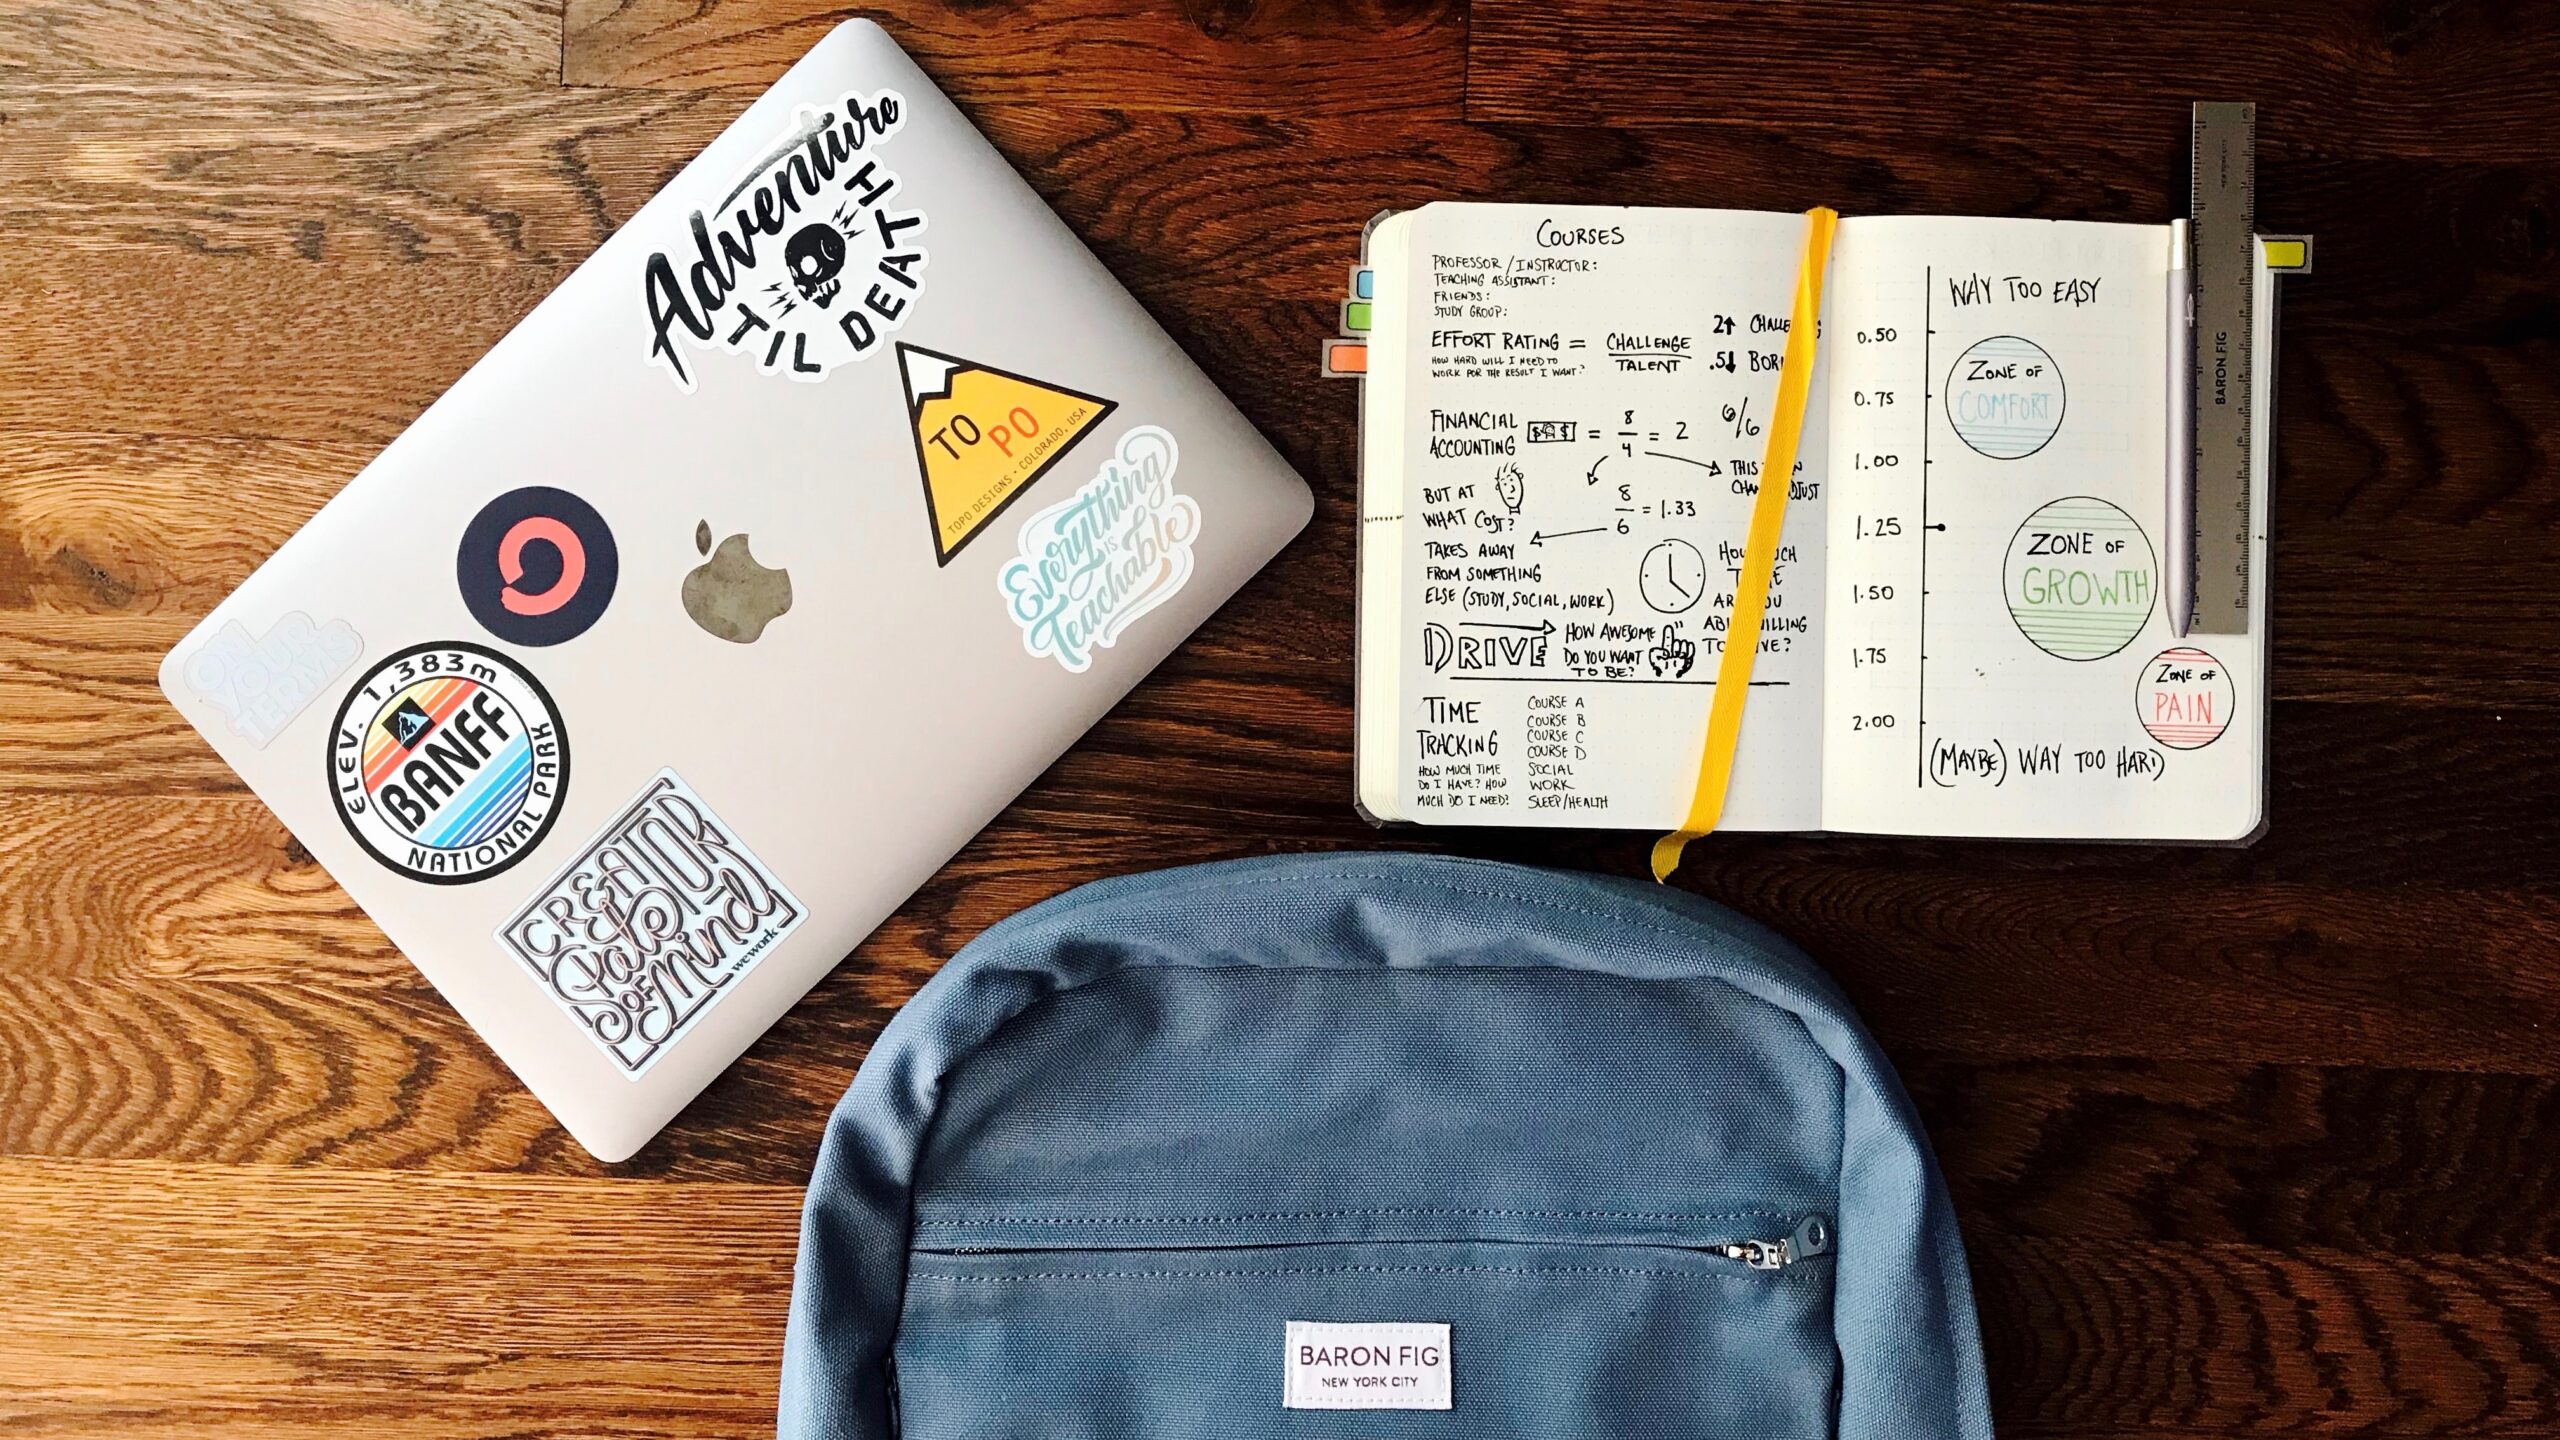 Adventure
TIL DEATH
TO PO
TOPO DESIGNS · COLORADO, USA
Everything
IS
Teachable
ON
YOUR
TERMS
ELEV. 1,383m
BANFF
NATIONAL PARK
CREATOR
State
OF
Mind
wework
COURSES
PROFESSOR/INSTRUCTOR:
TEACHING ASSISTANT:
FRIENDS:
STUDY GROUP:
EFFORT RATING = CHALLENGE
TALENT
HOW HARD WILL I NEED TO
WORK FOR THE RESULT I WANT?
2↑
.5↓
FINANCIAL
ACCOUNTING
$ $ = 8/4 = 2
6/6
8/6 = 1.33
THIS
BUT AT
WHAT COST?
TAKES AWAY
FROM SOMETHING
ELSE (STUDY, SOCIAL, WORK)
DRIVE
HOW AWESOME
DO YOU WANT
TO BE?
TIME
TRACKING
HOW MUCH TIME
DO I HAVE? HOW
MUCH DO I NEED?
COURSE A
COURSE B
COURSE C
COURSE D
SOCIAL
WORK
SLEEP/HEALTH
WAY TOO EASY
0.50
0.75
1.00
1.25
1.50
1.75
2.00
ZONE OF
COMFORT
ZONE OF
GROWTH
ZONE OF
PAIN
(MAYBE) WAY TOO HARD
BARON FIG
BARON FIG
NEW YORK CITY